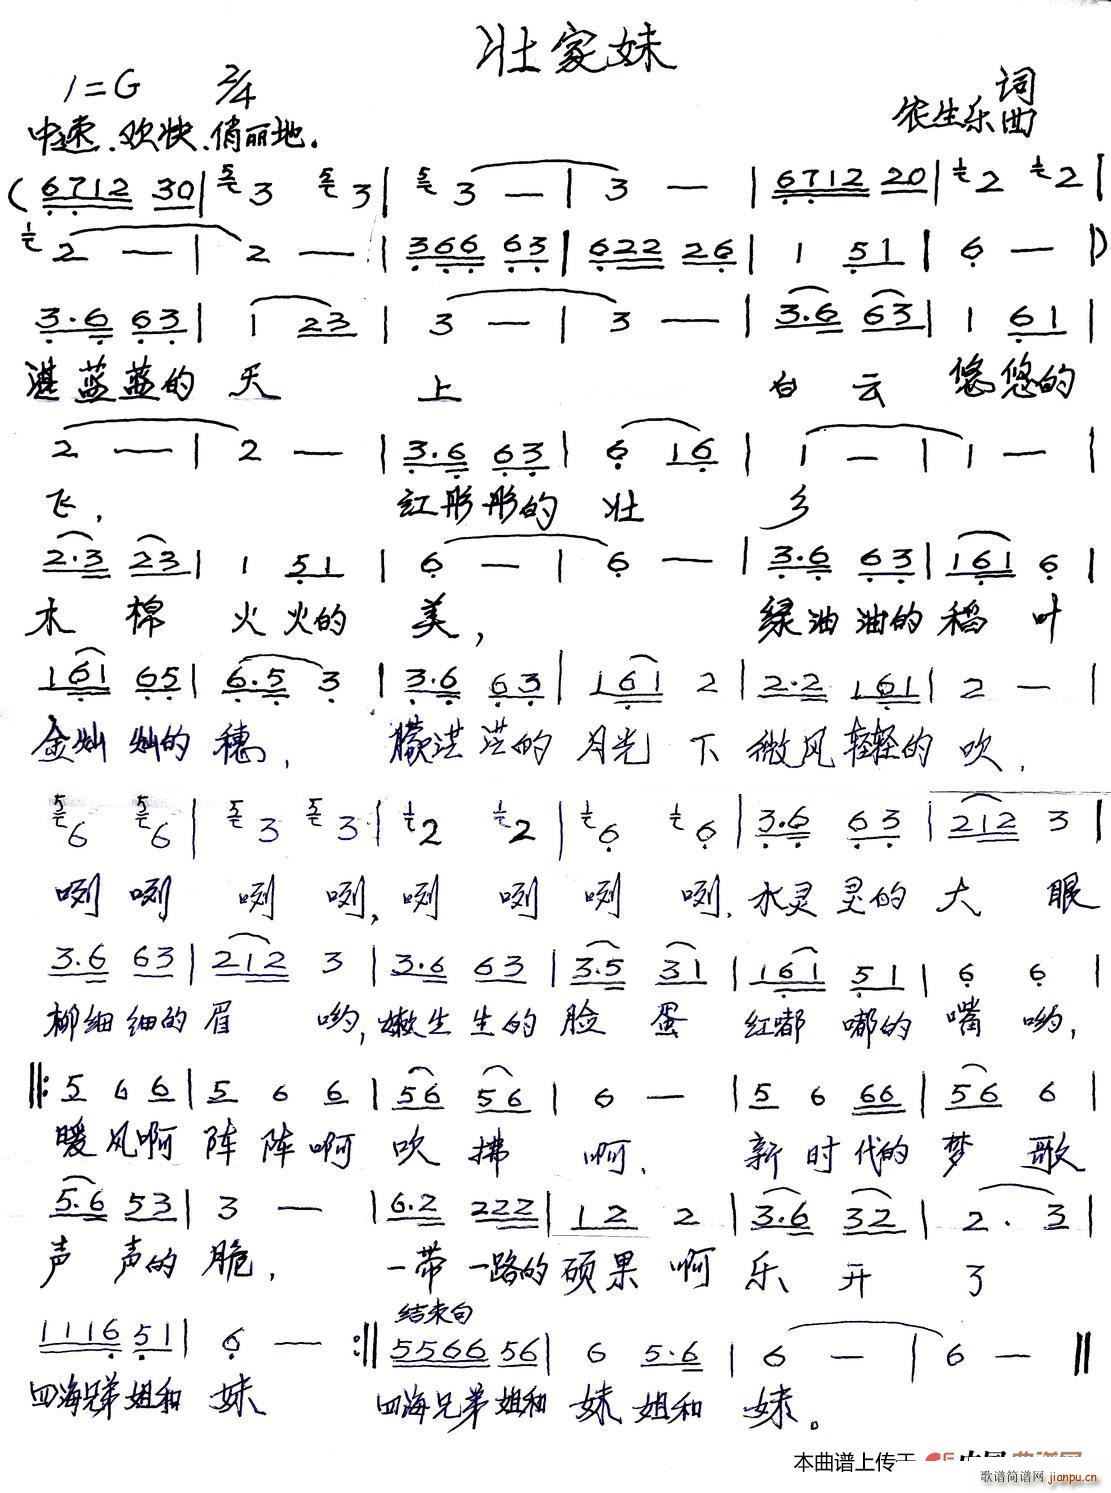 壮家妹
1=G 2/4
词
农生乐 曲
中速、欢快、俏丽地。
( 6712 30 | 3 3 | 3 — | 3 — | 6712 20 | 2 2 |
2 — | 2 — | 366 63 | 622 26 | 1 51 | 6 — | )
3·6 63 | 1 23 | 3 — | 3 — | 3·6 63 | 1 61 |
湛蓝蓝的天 上 白云 悠悠的
2 — | 2 — | 3·6 63 | 6 16 | 1 — | 1 — |
飞, 红彤彤的壮 乡
2·3 23 | 1 51 | 6 — | 6 — | 3·6 63 | 161 6 |
木棉 火火的 美, 绿油油的稻叶
161 65 | 6·5 3 | 3·6 63 | 161 2 | 2·2 161 | 2 — |
金灿灿的穗, 朦茫茫的月光下 微风轻轻的吹,
6 6 | 3 3 | 2 2 | 6 6 | 3·6 63 | 212 3 |
咧咧 咧咧, 咧咧咧咧, 水灵灵的大眼
3·6 63 | 212 3 | 3·6 63 | 3·5 31 | 161 51 | 6 6 |
柳细细的眉 哟, 嫩生生的脸蛋 红嘟嘟的嘴哟,
‖: 5 6 6 | 5 6 6 | 56 56 | 6 — | 5 6 66 | 56 6 |
暖风啊 阵阵啊 吹拂 啊, 新时代的梦歌
5·6 53 | 3 — | 6·2 222 | 12 2 | 3·6 32 | 2· 3 |
声声的脆, 一带一路的硕果啊 乐开 了
结束句
1116 51 | 6 — :‖ 5566 56 | 6 5·6 | 6 — | 6 — ‖
四海兄弟姐和 妹 四海兄弟姐和 妹姐和 妹。
本曲谱上传于
歌谱简谱网 jianpu.cn